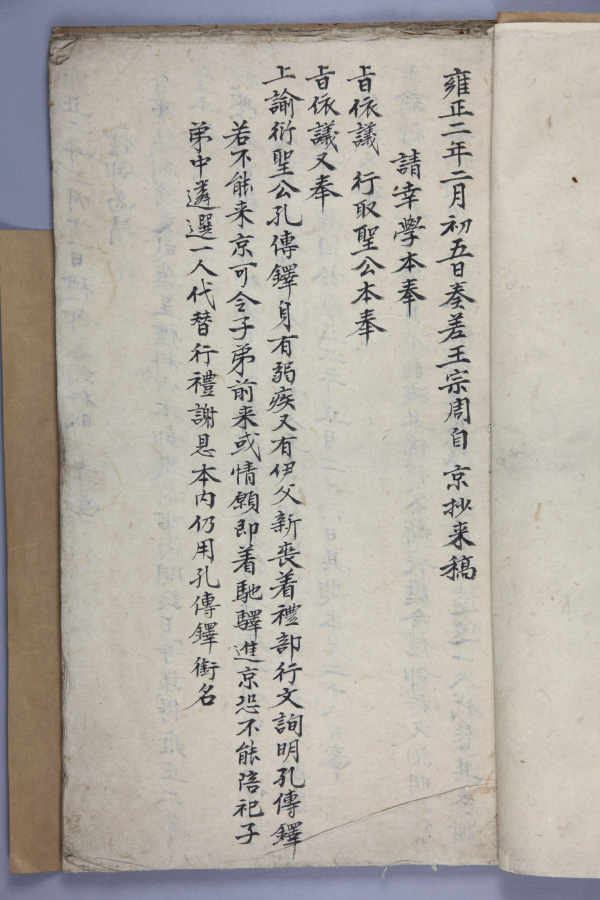 雍正二年二月初五日奏差王宗周自 京抄来稿
請幸學本奉
㫖依議 行取聖公本奉
㫖依議又奉
上諭衍聖公孔傳鐸身有弱疾又有伊父新丧着禮部行文詢明孔傳鐸
若不能来京可令子弟前来或情願即着馳驛進京恐不能陪祀子
弟中遴選一人代替行禮謝恩本内仍用孔傳鐸銜名